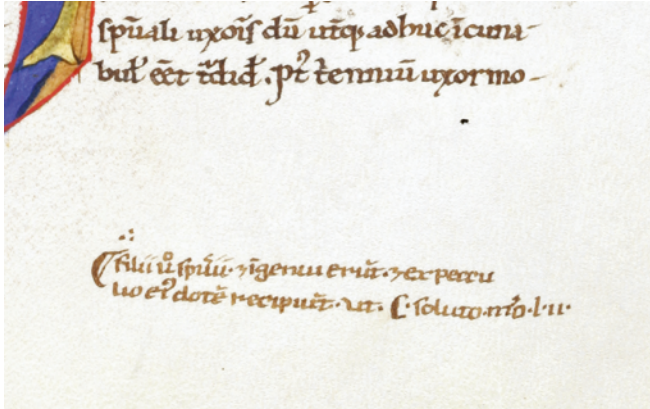 spūali uxoīs dū utq̄ adhuc ī cuna-
bul' eēt t̄did'. p⁹ t̄enniū uxor mo-
filii ū° sp̄ui · ⁊ īgenui erūt · ⁊ ex
uo ei⁹ dotē recipiūt · ut · C · soluto · m̄o · l · ii ·